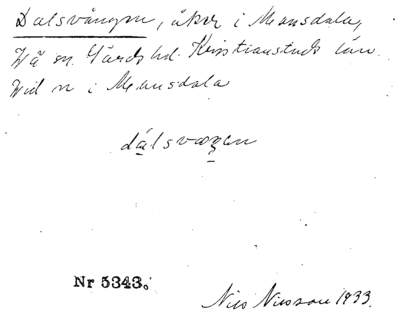 Dalsvången, åker i Mansdala,
Wä sn. Gärds hd. Kristianstads län.
Wid n i Mansdala
dalsvaŋen
Nr 5343.
Nils Nilsson 1933.